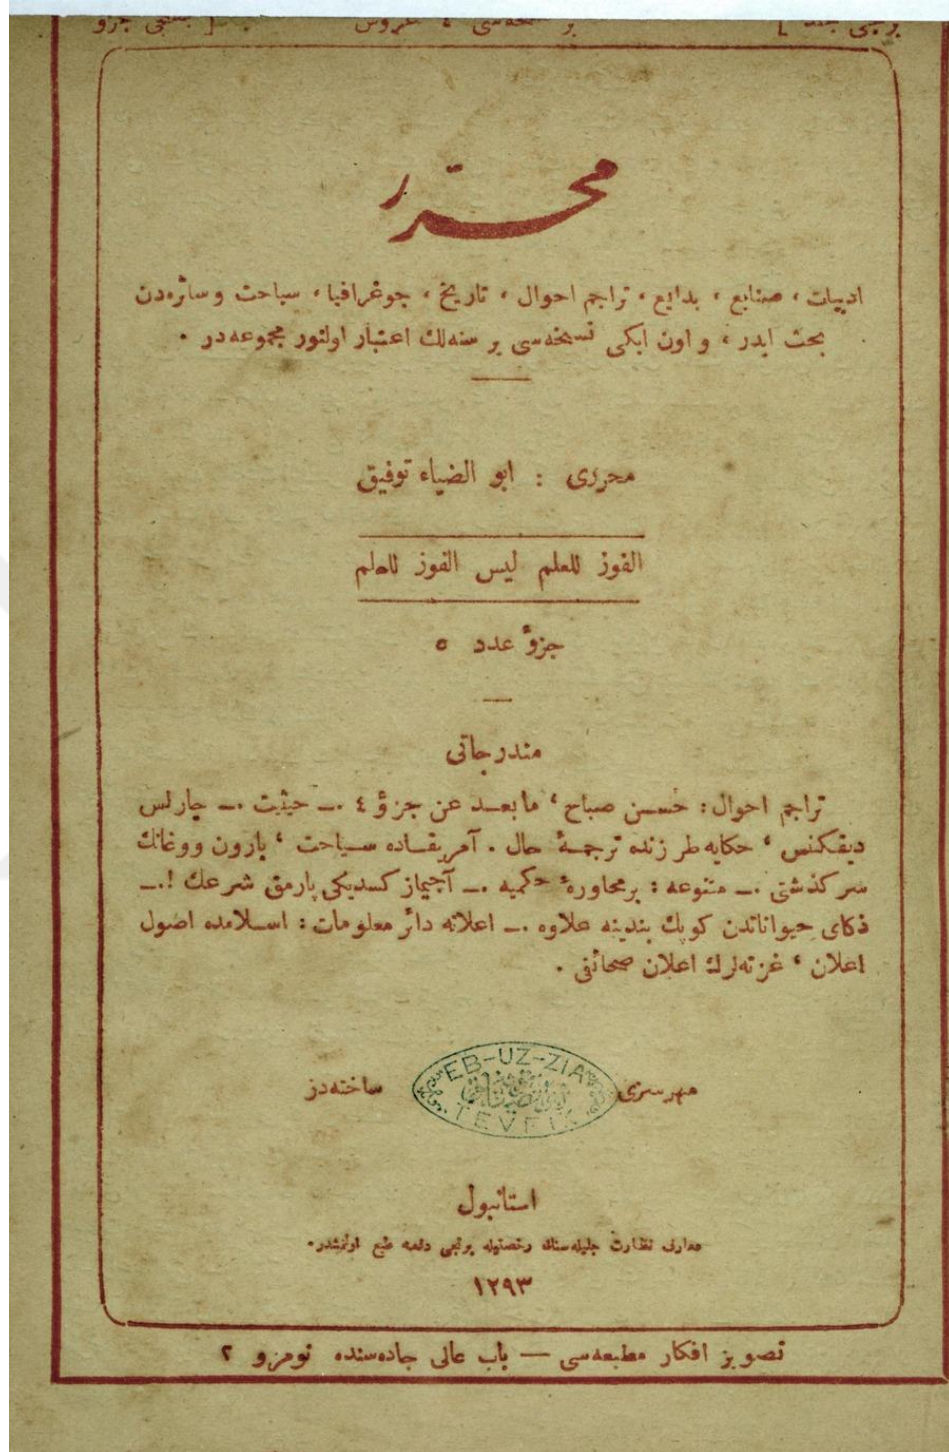 برنجی جلد [ بر نسخه‌سی ٤ غروش ] بشنجی جزو
محرّر
ادبیات ، صنایع ، بدایع ، تراجم احوال ، تاریخ ، جوغرافیا ، سیاحت و سائره‌دن
بحث ایدر ، و اون ایکی نسخه‌سی بر سنه‌لك اعتبار اولنور مجموعه‌در ٠
محرری : ابو الضیاء توفیق
الفوز للعلم لیس الفوز للعلم
جزؤ عدد ٥
مندرجاتی
تراجم احوال : حسن صباح ، مابعد عن جزؤ ٤ .ــ حیثیت .ــ چارلس
دیقکنس ، حکایه طرزنده ترجمهٔ حال . آمریقاده سیاحت ، بارون ووغانك
سرکذشتی .ــ متنوعه : برمحاورهٔ حکمیه .ــ آجیماز کسدیکی پارمق شرعك !.ــ
ذکای حیواناتدن کوپك بندینه علاوه .ــ اعلانه دائر معلومات : اسلامده اصول
اعلان ، غزته‌لرك اعلان صحائفی .
مهرسزی EB-UZ-ZIA TEVFIK ساخته‌در
استانبول
معارف نظارت جلیله‌سنك رخصتیله برنجی دفعه طبع اولنمشدر.
١٢٩٣
تصویر افکار مطبعه‌سی — باب عالی جاده‌سنده نومرو ٢